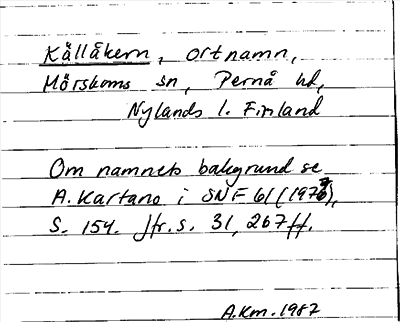 Källåkern, ortnamn,
Mörskoms sn, Pernå hd,
Nylands l. Finland
Om namnets bakgrund se
A. Kartano i SNF 61 (1973),
S. 154. Jfr. s. 31, 267 ff.
A.Km. 1987